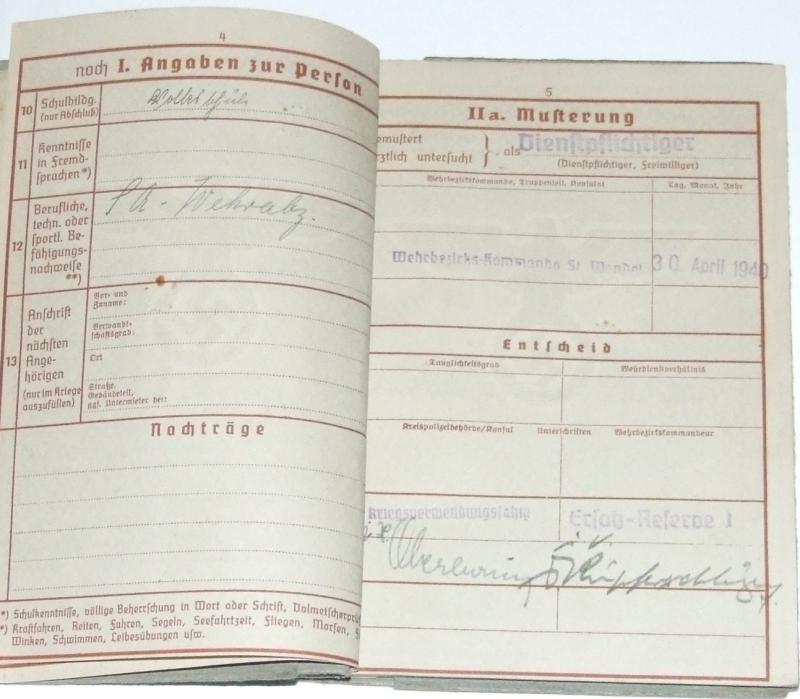 4
noch I. Angaben zur Person
10 Schulbildg.
(nur Abschluß)
Volksschule
11 Kenntnisse
in Fremd-
sprachen*)
12 Berufliche,
techn. oder
sportl. Be-
fähigungs-
nachweise
**)
SA-Wehrabz.
13 Anschrift
der
nächsten
Ange-
hörigen
(nur im Kriege
auszufüllen)
Vor- und
Zuname:
Verwandt-
schaftsgrad:
Ort
Straße,
Gebäudeteil,
ggf. Untermieter bei:
Nachträge
*) Schulkenntnisse, völlige Beherrschung in Wort oder Schrift, Dolmetscherprü
**) Kraftfahren, Reiten, Fahren, Segeln, Seefahrtzeit, Fliegen, Morsen,
Winken, Schwimmen, Leibesübungen usw.
5
IIa. Musterung
emustert
rztlich untersucht } als Dienstpflichtiger
(Dienstpflichtiger, Freiwilliger)
Wehrbezirkskommando, Truppenteil, Konsulat
Tag, Monat, Jahr
Wehrbezirks-Kommando St. Wendel
30. April 1940
Entscheid
Tauglichkeitsgrad
Wehrdienstverhältnis
Kreispolizeibehörde/Konsul Unterschriften Wehrbezirkskommandeur
kriegsverwendungsfähig
Ersatz-Reserve I
i. V.